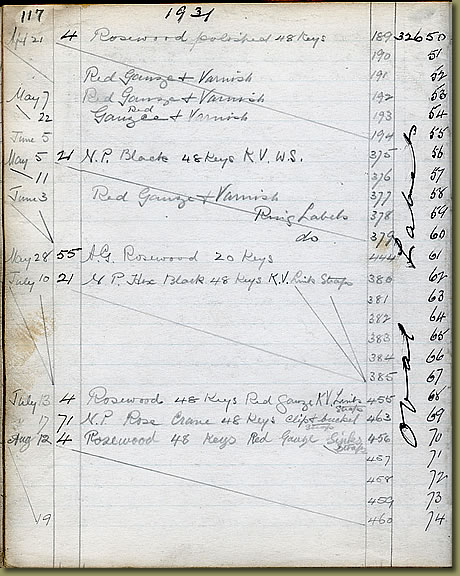 117 1931
4 Rosewood polished 48 Keys 189 32650
190 51
Red Gauze & Varnish 191 52
May 7 Red Gauze & Varnish 192 53
22 Gauze Red & Varnish 193 54
June 5 194 55
May 5 21 N.P. Black 48 Keys K.V. W.S. 375 56
11 376 57
June 3 Red Gauze & Varnish 377 58
Ring Labels 378 59
do 379 60
May 28 55 A.G. Rosewood 20 Keys 444 61
July 10 21 N.P. Hex Black 48 Keys K.V. Links Straps 380 62
381 63
382 64
383 65
384 66
385 67
July 13 4 Rosewood 48 Keys Red Gauze K.V. Links Straps 455 68
17 71 N.P. Rose Crane 48 Keys Clip & bucket 463 69
Aug 12 4 Rosewood 48 Keys Red Gauze straps 456 70
457 71
458 72
459 73
19 460 74
Oval Labels